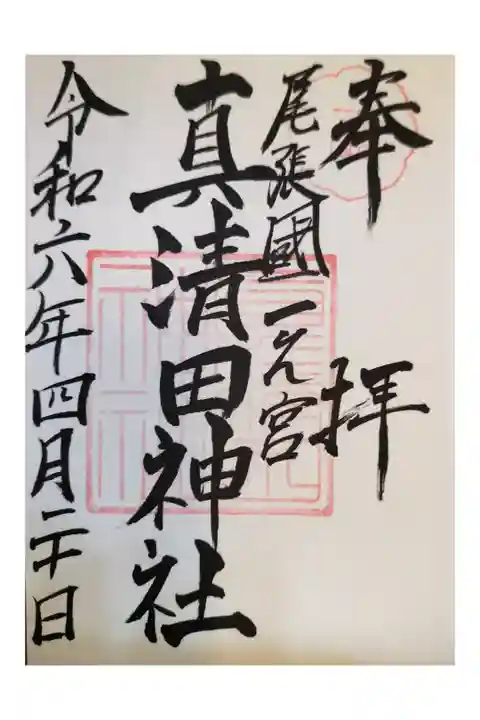 奉拝
尾張國一之宮
真清田神社
令和六年四月二十日